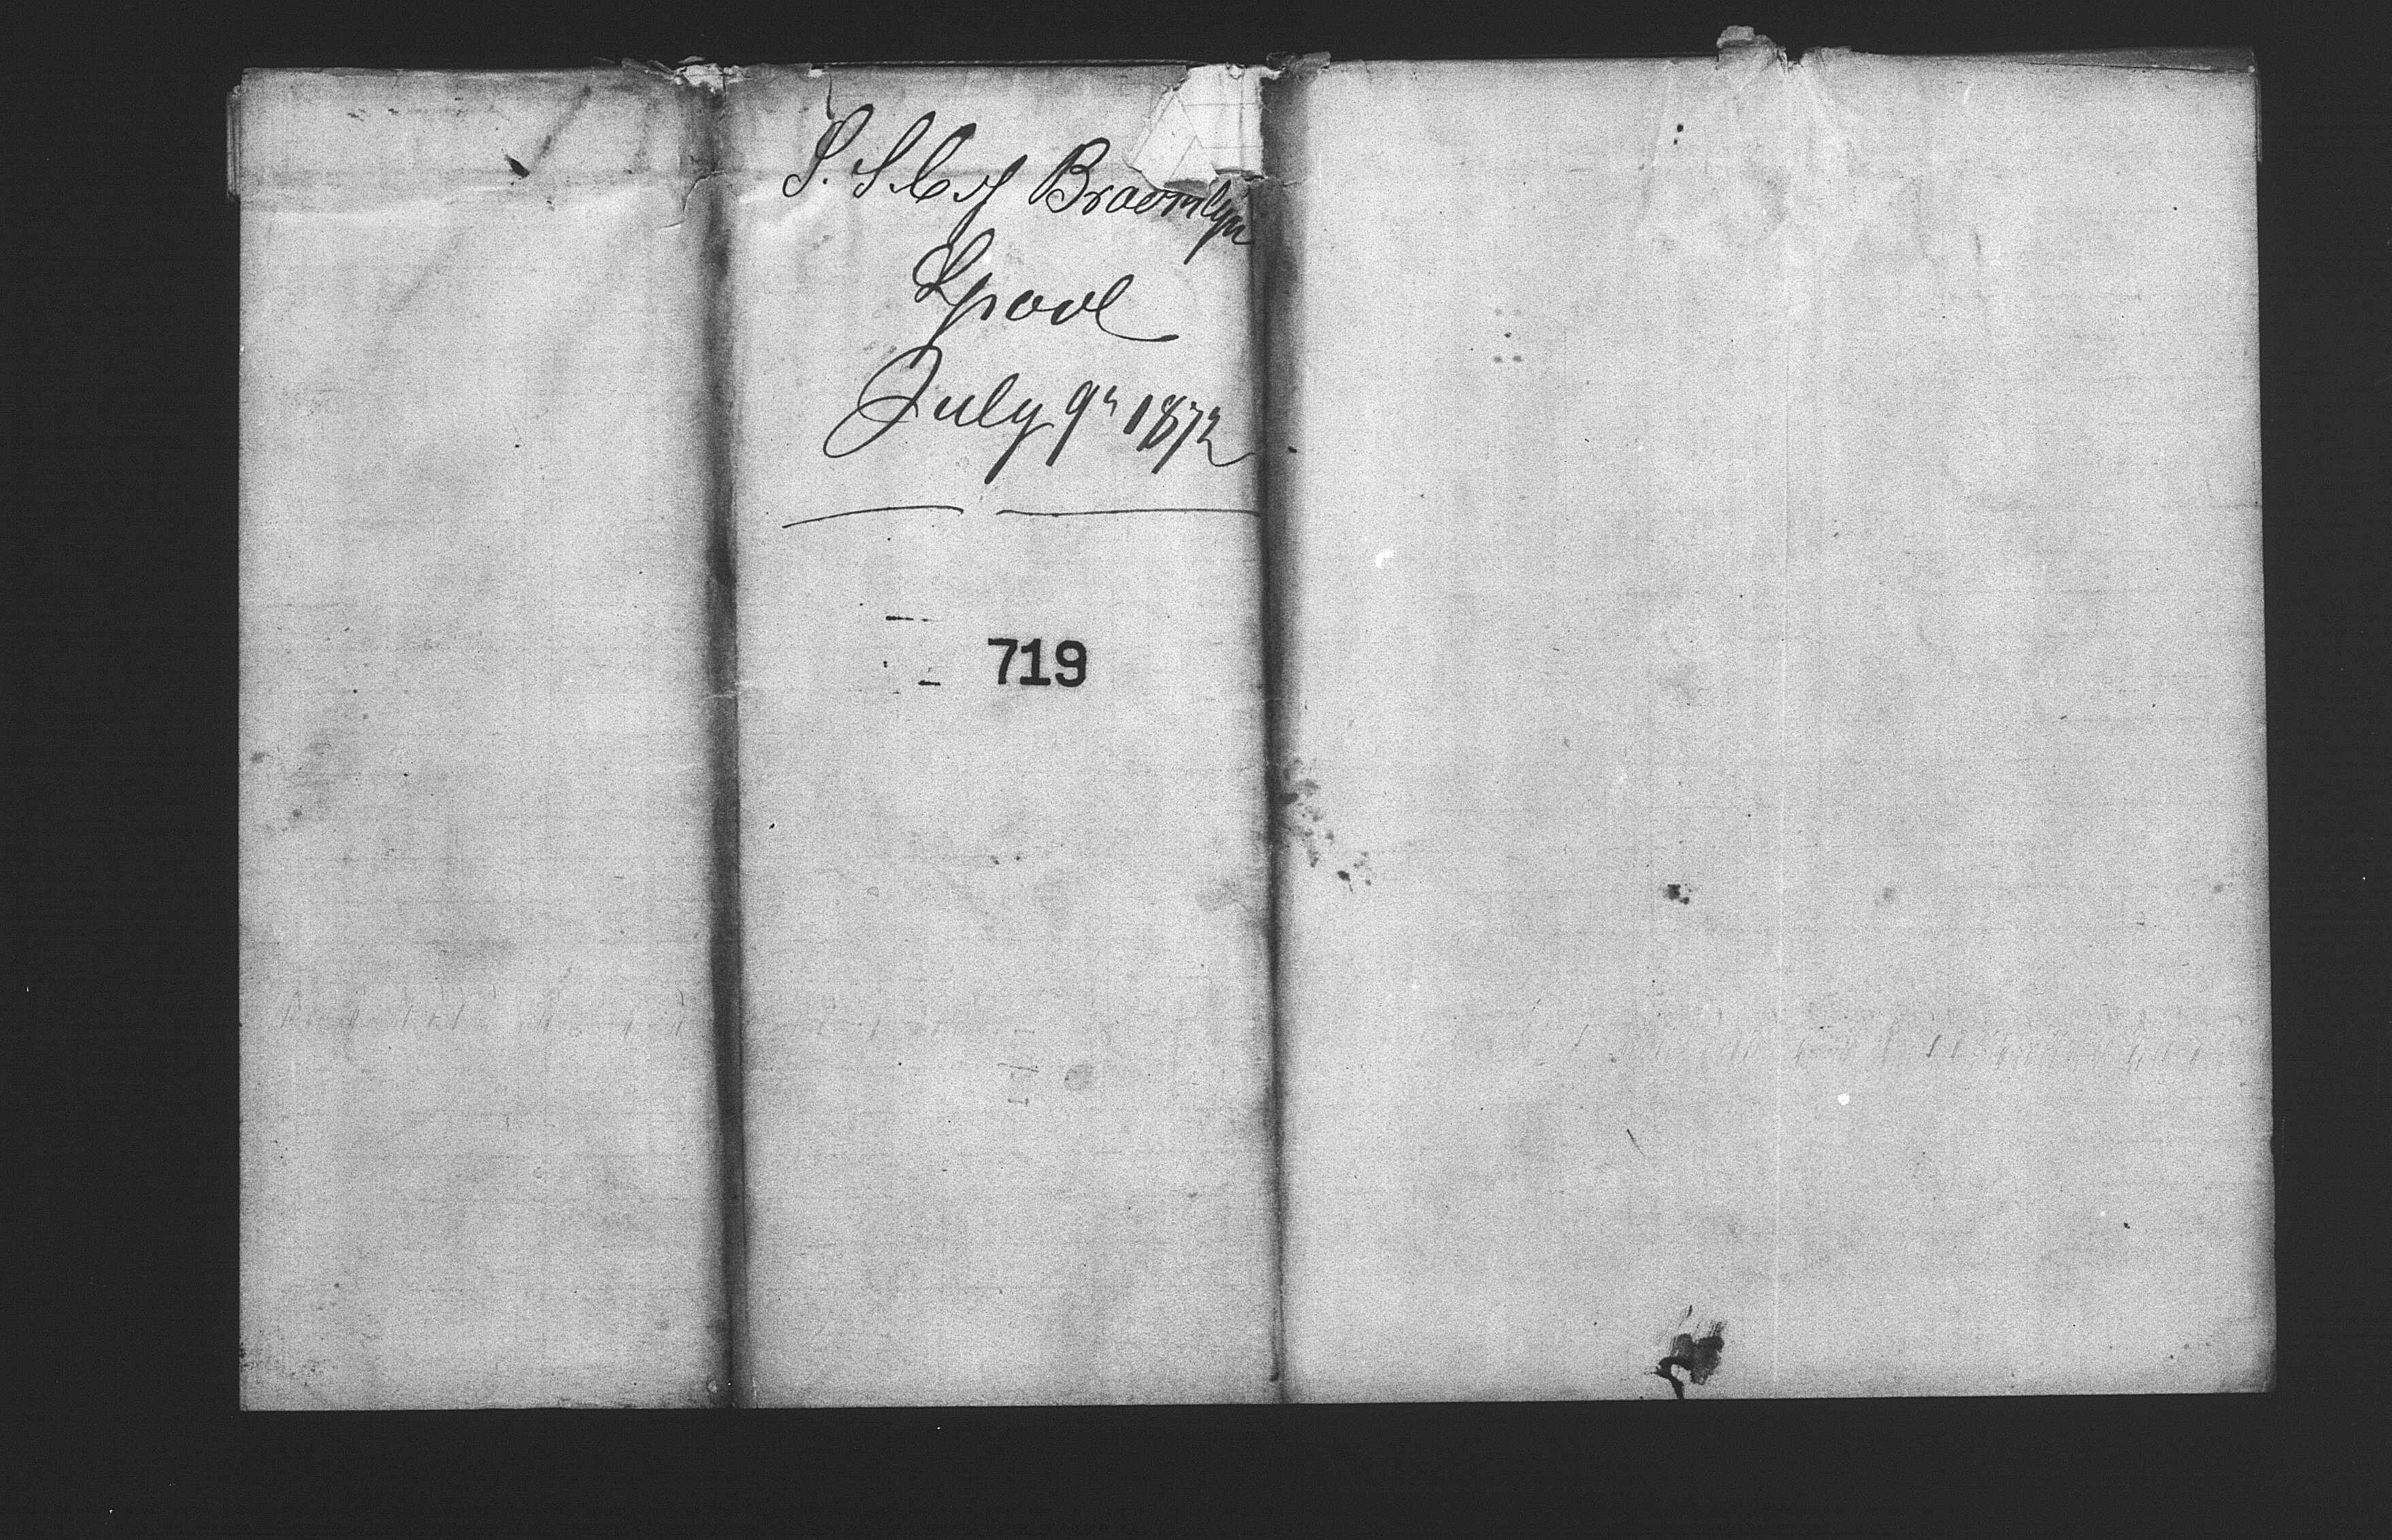 S. S. C of Brooklyn
Lpool
July 9th 1872
719